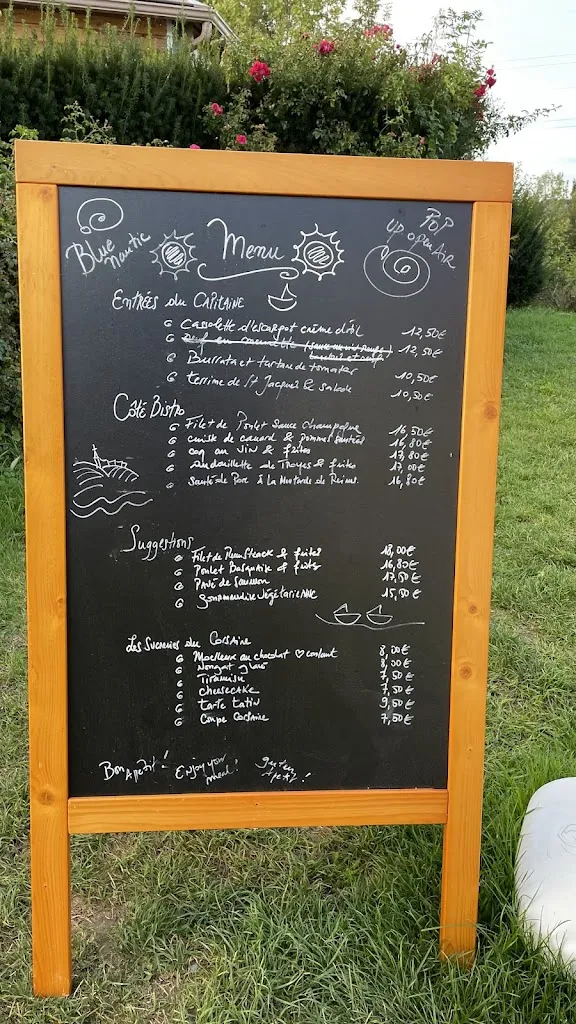 Blue
nautic
Menu
POP
UP open AiR
ENTRÉES du CAPITAINE
Cassolette d'escargot crème d'ail 12,50€
Oeuf en cocotte 12,50€
Burrata et tartare de tomates 10,50€
terrine de St Jacques & salade 10,50€
Côté Bistro
Filet de Poulet Sauce Champagne 16,50€
cuisse de canard & pommes sautées 16,80€
coq au VIN & frites 17,80€
andouillette de Troyes & frites 17,00€
Sauté de Porc à La Moutarde de Reims 16,80€
Suggestions
Filet de RumSteack & frites 18,00€
Poulet Basquaise & frites 16,80€
Pavé de Saumon 17,50€
gourmandise végétarienne 15,50€
Les Sucreries du Corsaire
Moelleux au chocolat coulant 8,00€
Nougat glacé 8,00€
Tiramisu 7,50€
cheesecake 7,50€
tarte tatin 9,50€
Coupe Corsaire 7,50€
Bon Apetit!
Enjoy your
meal!
guten
!